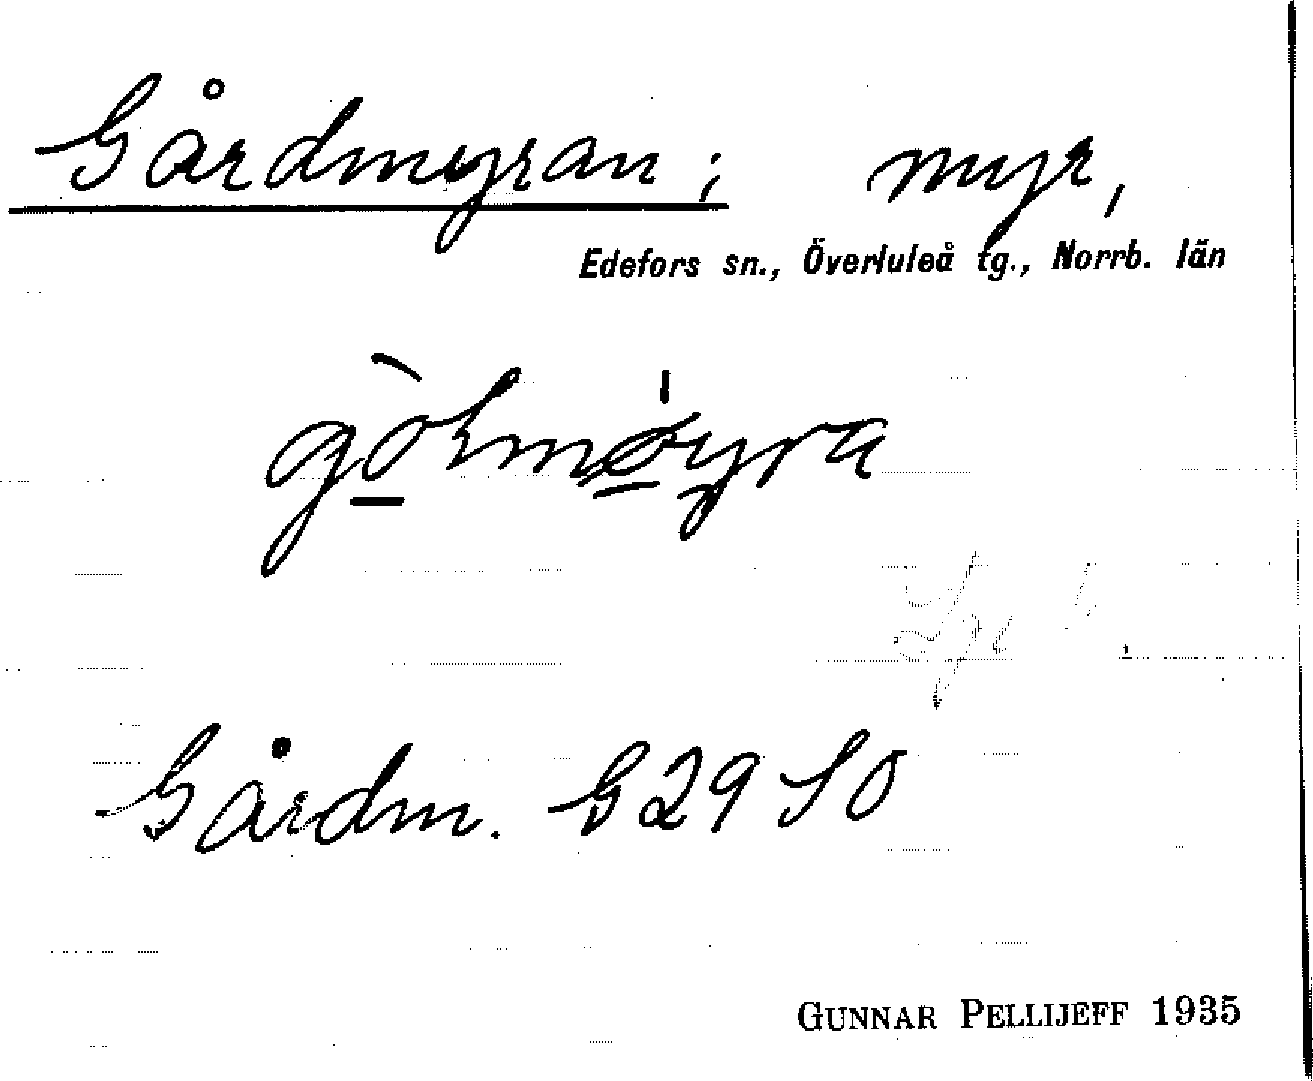 Gårdmyran; myr,
Edefors sn., Överluleå tg., Norrb. län
Gårdm. G29 SO
GUNNAR PELLIJEFF 1935